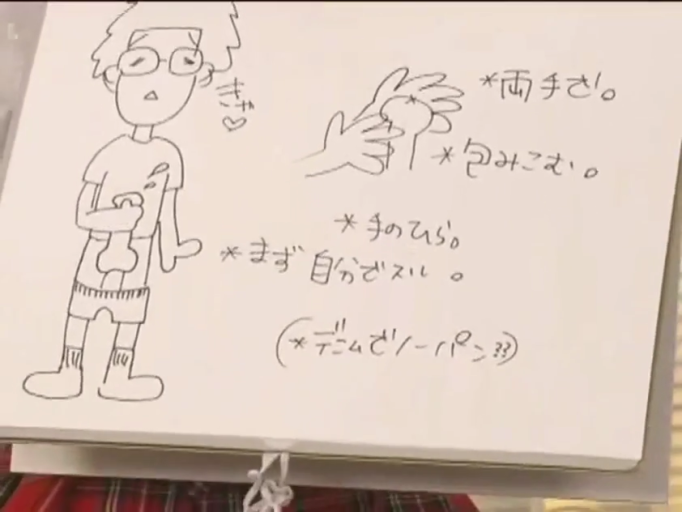 きゃ♡
*両手で。
*包みこむ。
*手のひら。
*まず自分でスル。
(*デニムでノーパン??)